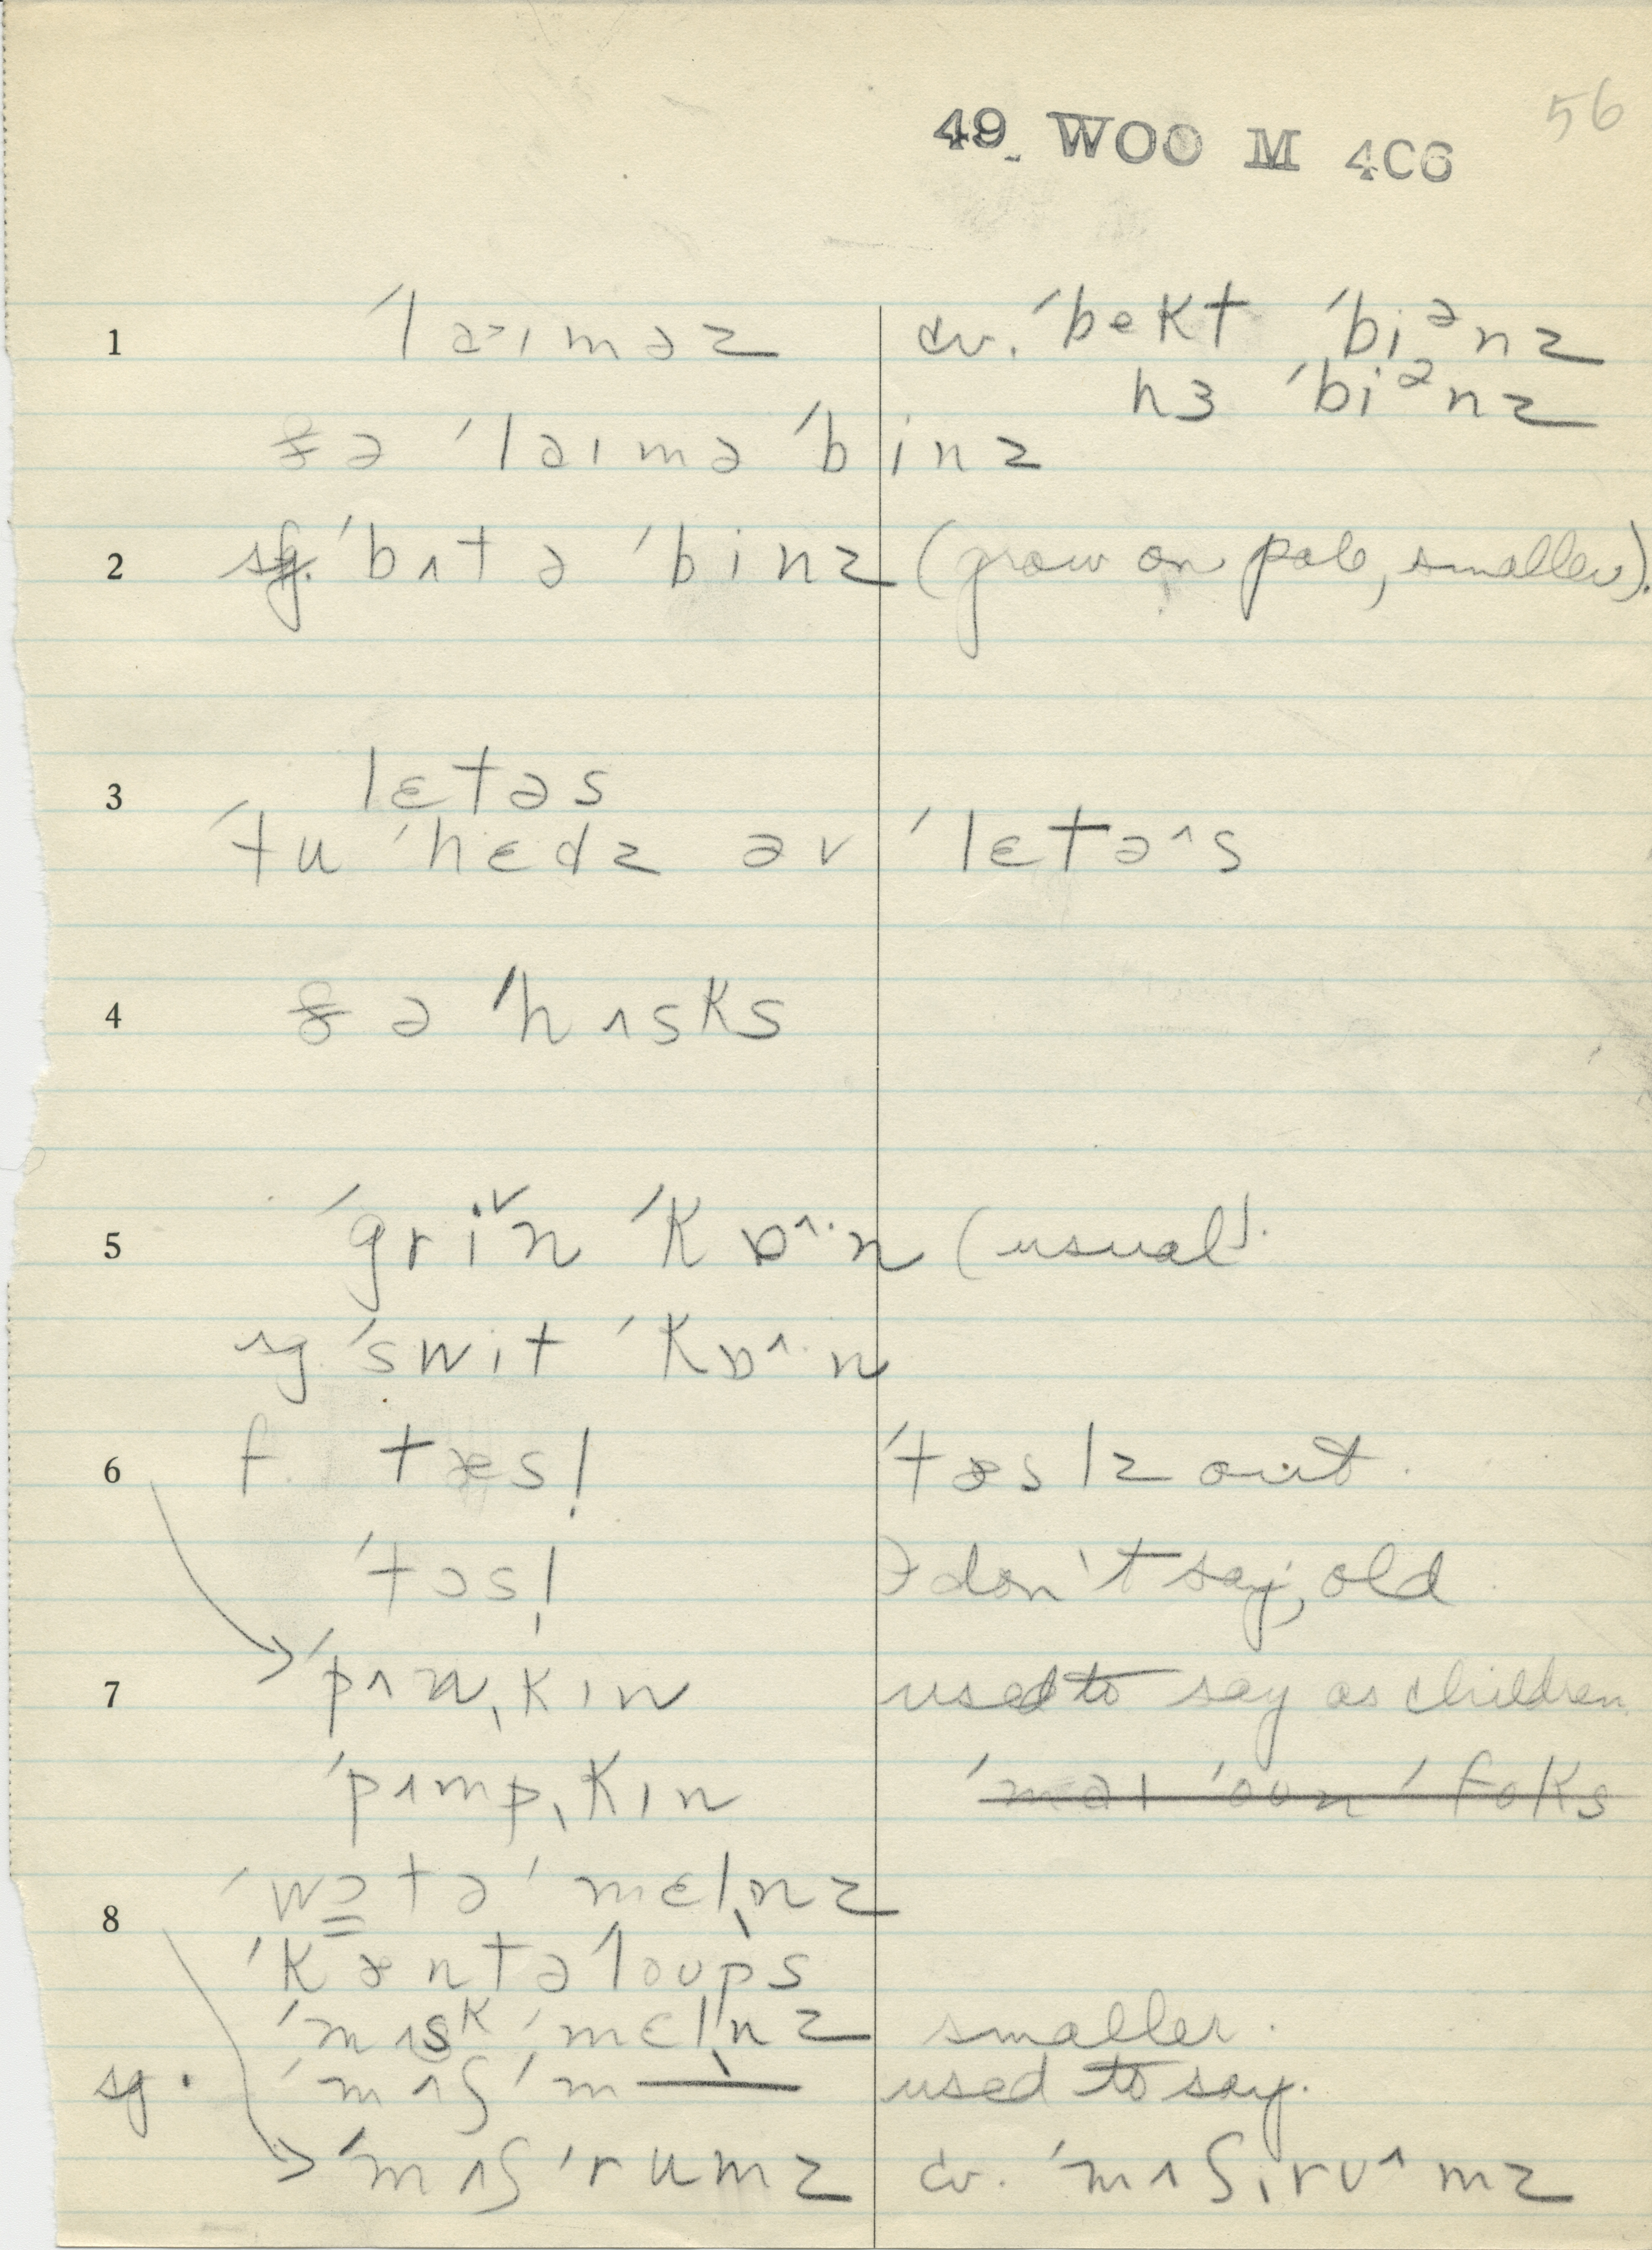 56
49 WOO M 406
1 ˈləɪməz cv. ˈbekt ˈbiᵊnz
hɜ ˈbiᵊnz
ðə ˈləɪmə ˈbinz
2 sg. ˈbʌtə ˈbinz (grow on pole, smaller).
3 lɛtəs
ˈtu ˈhɛdz əv ˈlɛtə^s
4 ðə ˈhʌsks
5 ˈgriˇn ˈkɒ^·n (usual).
sg ˈswit ˈkɒ^·n
6 f. tæsl̩ ˈtæslz out.
ˈtɔsl̩ I don't say, old
7 ˈpʌnˌkɪn used to say as children
ˈpʌmpˌkɪn ˈməɪ ˈoʊn ˈfoks
8 ˈwɔtə ˈmɛln̩z
ˈkæntəˈloʊps
ˈmʌskˌmɛln̩z smaller.
sg. ˈmʌʃˈm— used to say.
ˈmʌʃˈrumz cv. ˈmʌʃˌrʊ^mz